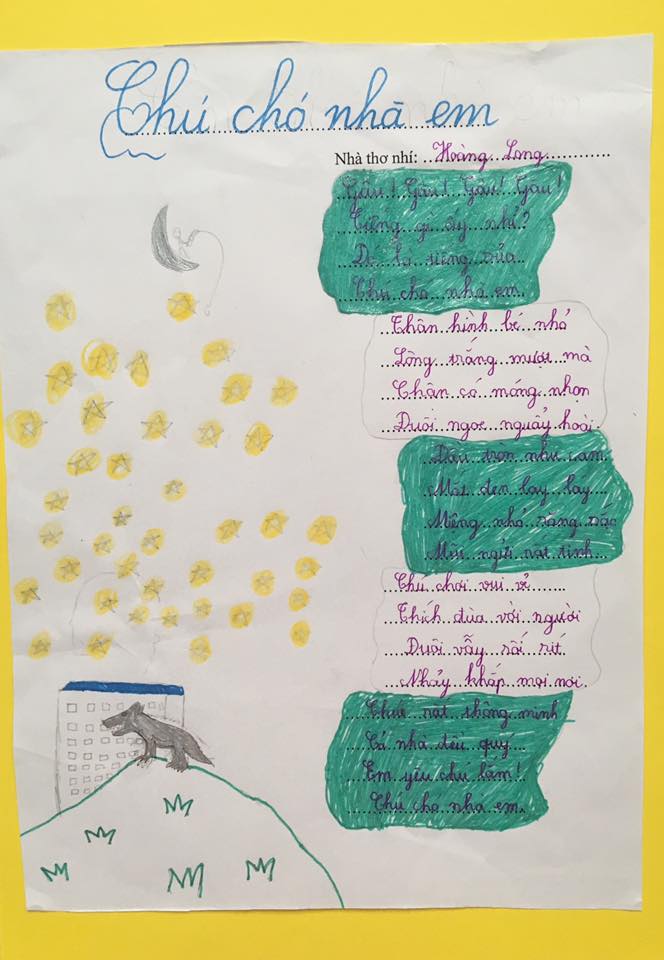 Chú chó nhà em
Nhà thơ nhí: Hoàng Long
Gâu! Gâu! Gâu! Gâu!
Tiếng gì ấy nhỉ?
Đó là tiếng của
Chú chó nhà em.
Thân hình bé nhỏ
Lông trắng mượt mà
Chân có móng nhọn
Đuôi ngoe nguẩy hoài.
Đầu tròn như cam
Mắt đen lay láy
Miệng nhỏ răng sắc
Mũi ngửi rất tinh
Chú chơi vui vẻ
Thích đùa với người
Đuôi vẫy rối rít
Nhảy khắp mọi nơi.
rất thông minh
Cả nhà đều quý
Em yêu chú lắm!
Chú chó nhà em.